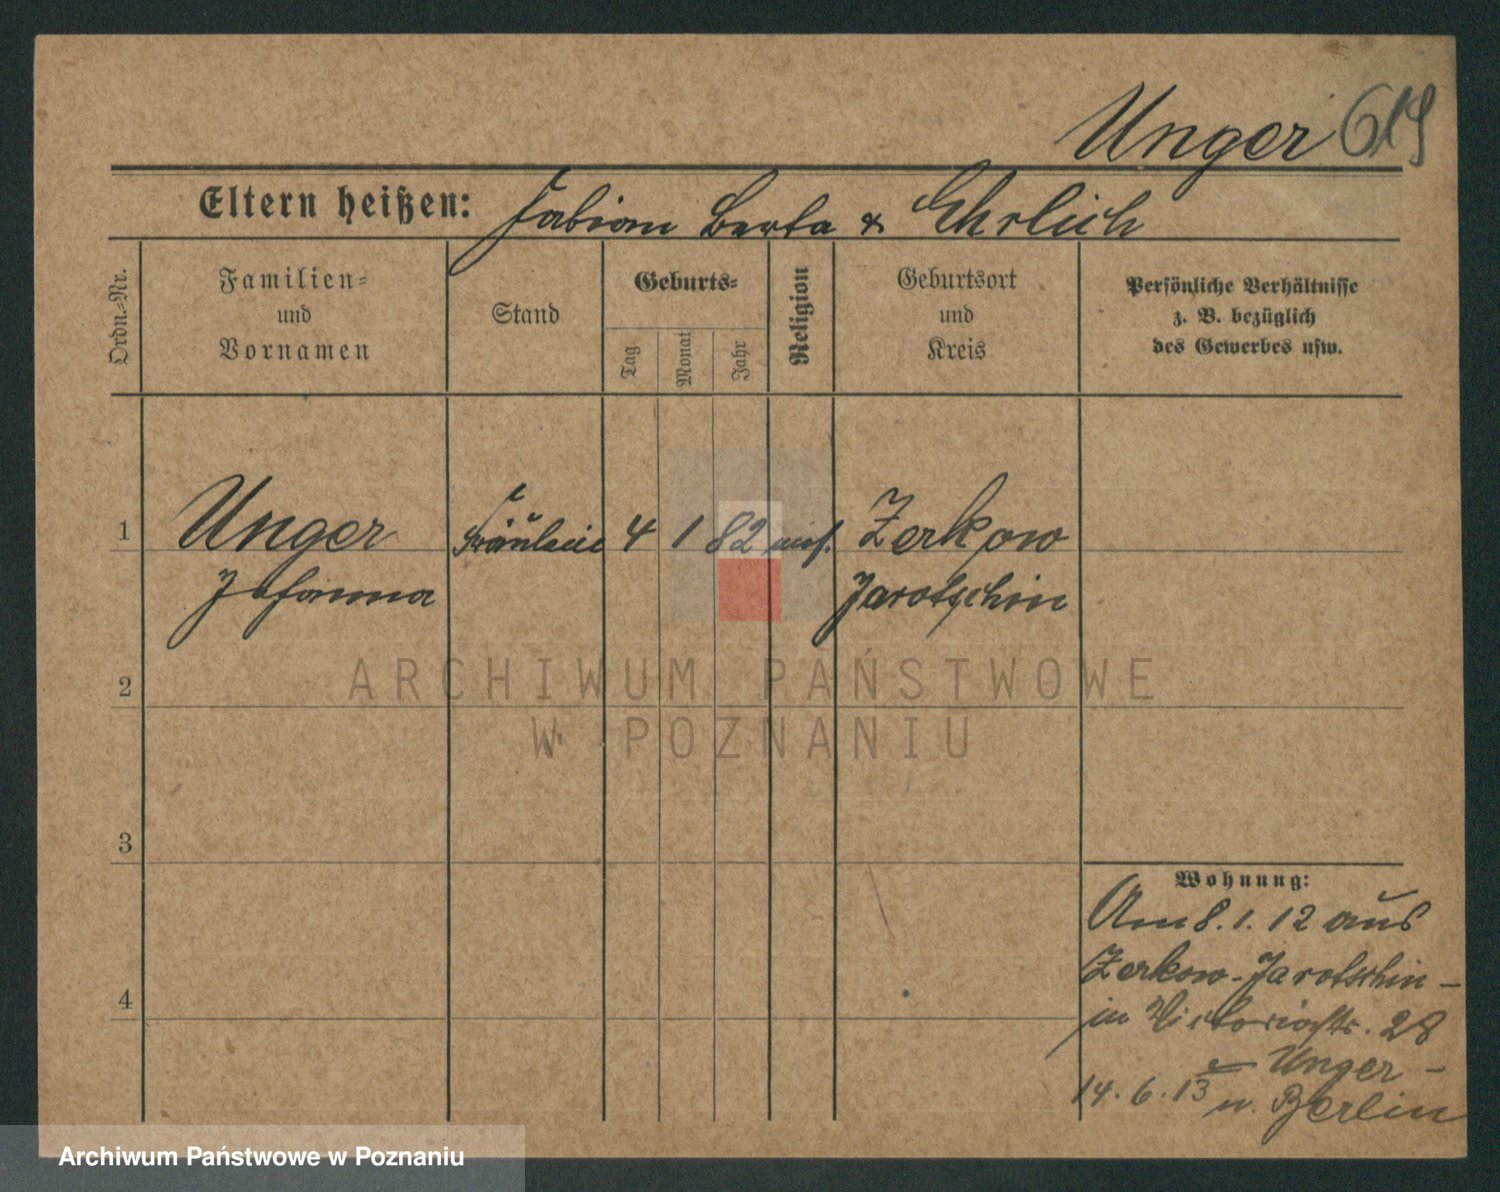 Unger 619
Eltern heißen: Fabian Berta & Ehrlich
Ordn.-Nr.
Familien-
und
Vornamen
Stand
Geburts-
Tag
Monat
Jahr
Religion
Geburtsort
und
Kreis
Persönliche Verhältnisse
z. B. bezüglich
des Gewerbes usw.
1
Unger Fräulein 4 1 82 mos. Zerkow
Johanna Jarotschin
2
3
4
Wohnung:
Am 8. 1. 12 aus
Zerkow-Jarotschin -
in Victoriastr. 28
Unger -
14. 6. 13 n. Berlin
ARCHIWUM PAŃSTWOWE
W POZNANIU
Archiwum Państwowe w Poznaniu